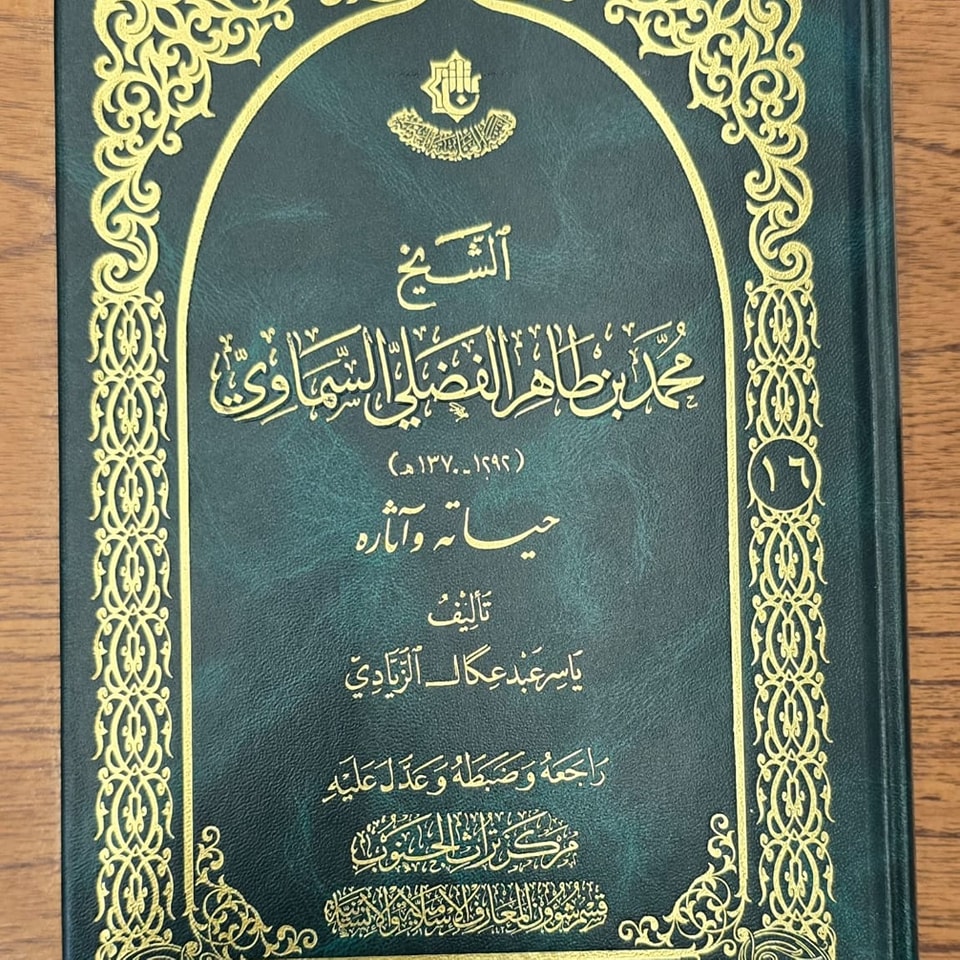 الشَّيخ
مُحمَّد بن طَاهِر الفَضليّ السَّمَاوِيّ
(١٢٩٢-١٣٧٠هـ)
حياته وآثاره
تَأليفُ
يَاسر عَبد عِكَال الزّيَادِيّ
رَاجَعَهُ وَضَبَطَهُ وَعَدَّلَ عَلَيْهِ
مَركز تُراث الجَنوب
قسم شؤون المعارف الإسلامية والإنسانية
١٦